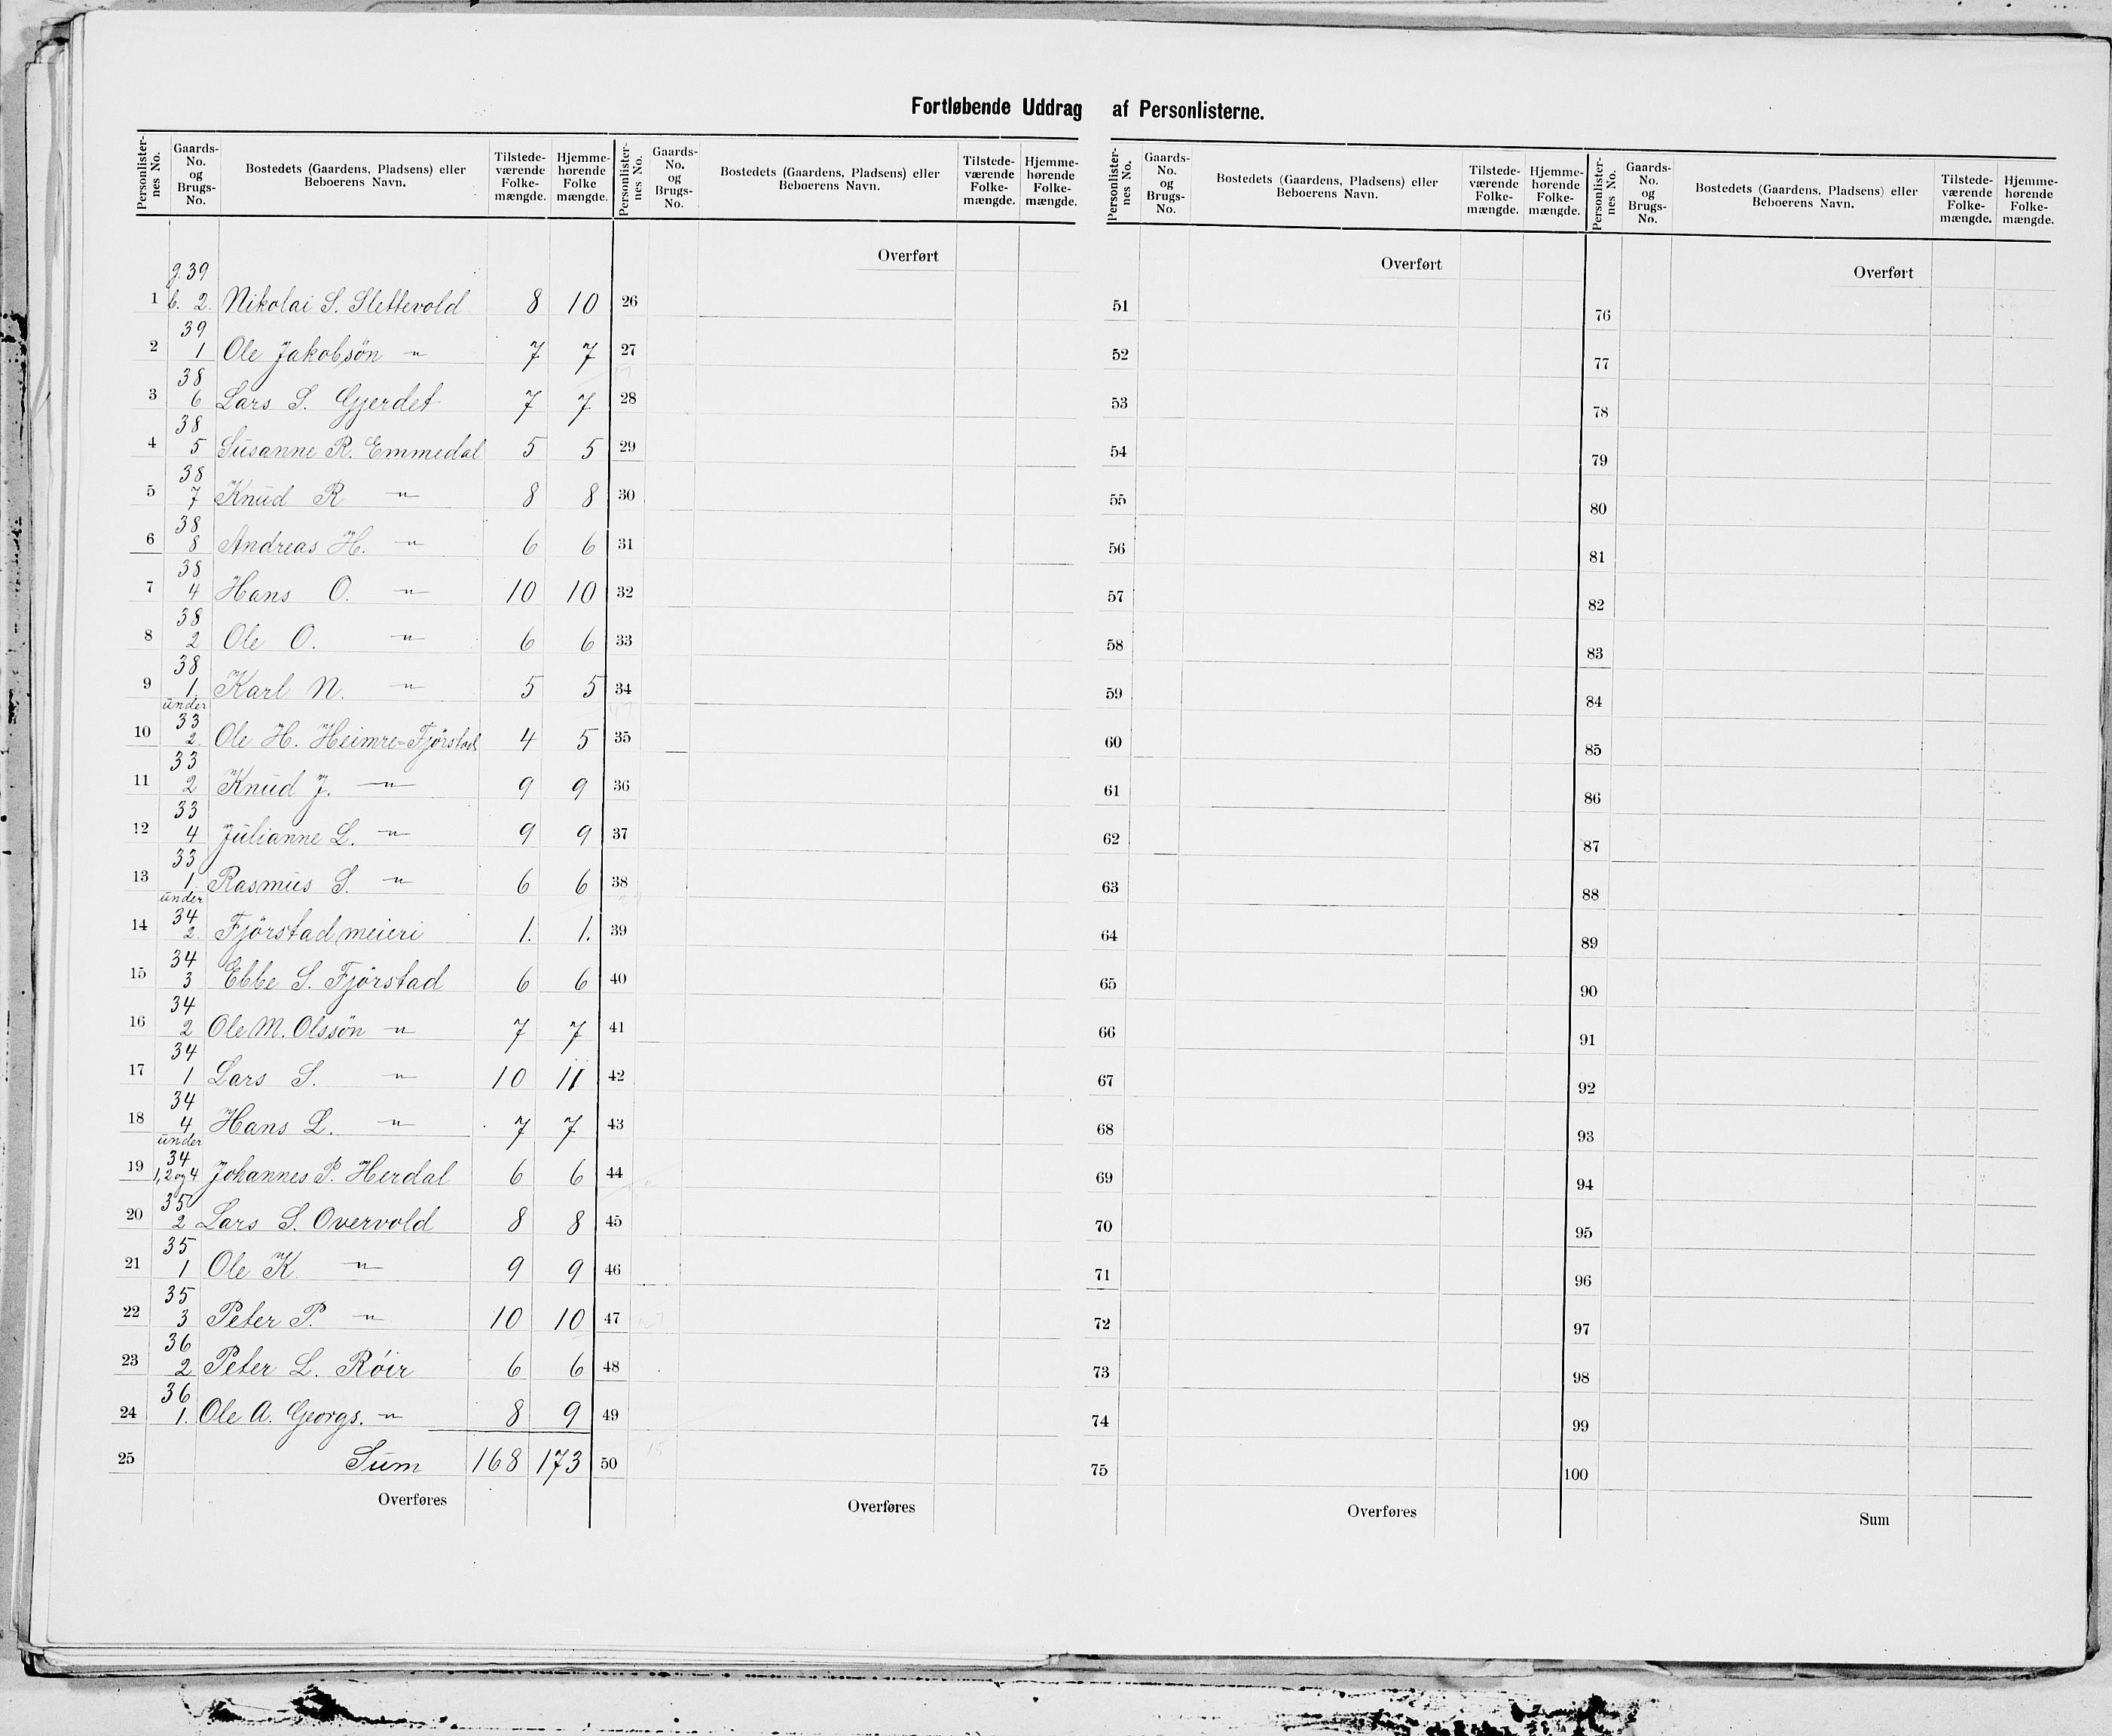 Fortløbende Uddrag af Personlisterne.
Personlister-nes No. Gaards-No. og Brugs-No. Bostedets (Gaardens, Pladsens) eller Beboerens Navn. Tilstede-værende Folke-mængde. Hjemme-hørende Folke mængde. Personlister-nes No. Gaards-No. og Brugs-No. Bostedets (Gaardens, Pladsens) eller Beboerens Navn. Tilstede-værende Folke-mængde. Hjemme-hørende Folke-mængde. Personlister-nes No. Gaards-No. og Brugs-No. Bostedets (Gaardens, Pladsens) eller Beboerens Navn. Tilstede-værende Folke-mængde. Hjemme-hørende Folke-mængde. Personlister-nes No. Gaards-No. og Brugs-No. Bostedets (Gaardens, Pladsens) eller Beboerens Navn. Tilstede-værende Folke-mængde. Hjemme-hørende Folke-mængde.
Overført Overført Overført
g. 39
1 b. 2. Nikolai S. Slettevold 8 10 26 51 76
39
2 1 Ole Jakobsön " 7 7 27 52 77
38
3 6 Lars S. Gjerdet 7 7 28 53 78
38
4 5 Susanne R. Emmedal 5 5 29 54 79
38
5 7 Knud R " 8 8 30 55 80
38
6 8 Andreas H. " 6 6 31 56 81
38
7 4 Hans O. " 10 10 32 57 82
38
8 2 Ole O. " 6 6 33 58 83
38
9 1. Karl N. " 5 5 34 59 84
under
33
10 2. Ole H. Heimre-Fjørstad 4 5 35 60 85
33
11 2 Knud J. " 9 9 36 61 86
33
12 4 Julianne L. " 9 9 37 62 87
33
13 1. Rasmus S. " 6 6 38 63 88
under
34
14 2. Fjörstad meieri 1. 1. 39 64 89
34
15 3 Ebbe S. Fjörstad 6 6 40 65 90
34
16 2 Ole M. Olssön " 7 7 41 66 91
34
17 1 Lars S. " 10 11 42 67 92
34
18 4 Hans L. " 7 7 43 68 93
under
34
19 1, 2 og 4 Johannes P. Herdal 6 6 44 69 94
35
20 2 Lars S. Overvold 8 8 45 70 95
35
21 1 Ole K. " 9 9 46 71 96
35
22 3 Peter P. " 10 10 47 72 97
36
23 2 Peter L. Röir 6 6 48 73 98
36
24 1. Ole A. Georgs. " 8 9 49 74 99
25 Sum 168 173 50 75 100
Overføres Overføres Overføres Sum